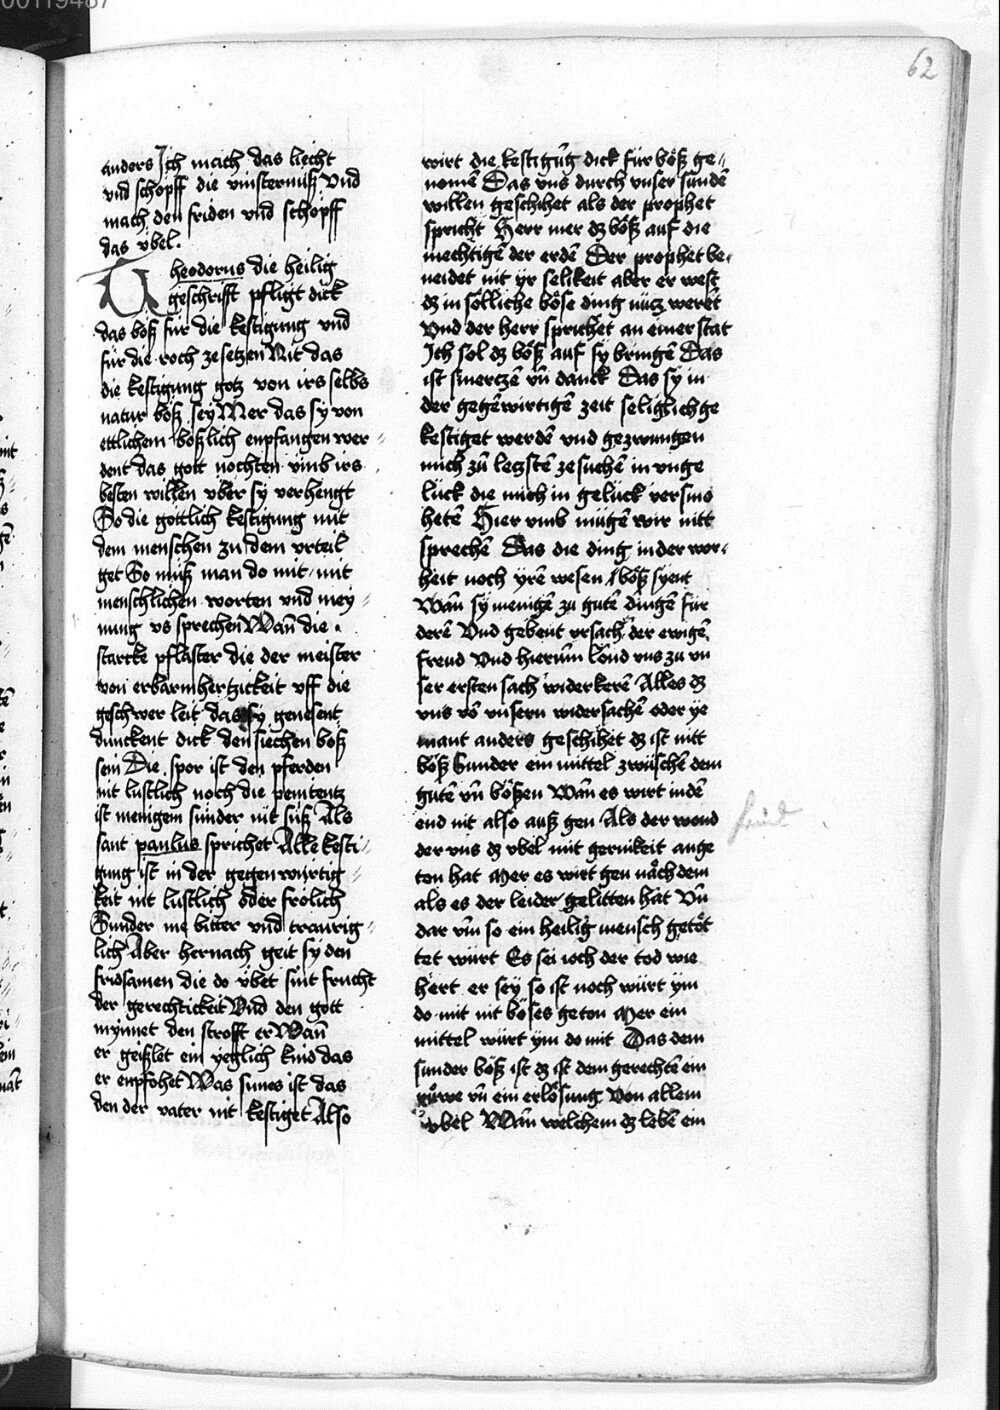 62
anders Ich mach das liecht
vnd schopff die vinsternuß Vnd
mach den friden vnd schopff
das v̈bel.
Theodorus die heilig
geschrifft pfligt dick
das böß für die kestigung vnd
für die roch ze setzen Nit das
die kestigung gotz von irs selbs
natur böß sey Mer das sy von
ettlichem bößlich enpfangen wer⸗
dent das gott nochten vmb irs
besten willen v̈ber sy verhengt
So die göttlich kestigung mit
dem menschen zu dem vrteil
get So muß man do mit mit
menschlichen worten vnd mey⸗
nung vs sprechen Wan̄ die
starcke pflaster die der meister
von erbarmhertzickeit vff die
geschwer leit das sy genesent
dunckent dick den siechen böß
sein Die spor ist den pferden
nit lustlich noch die penitentz
ist menigem sunder nit süß Als
sant paulus sprichet Alle kesti⸗
gung ist in der gegenwürtig⸗
keit nit lustlich oder frölich
Sunder me bitter vnd traurig⸗
lich Aber hernach geit sy den
fridsamen die do v̈bet sint frucht
der gerechtickeit Vnd den gott
mynnet den strofft er Wan̄
er geißlet ein yeglich kind das
er enpfohet Was sunes ist das
den der vater nit kestiget Also
wirt die kestigūg dick für böß ge⸗
nomē Das vns durch vnser sundē
willen geschihet als der prophet
spricht Herr mer dz böß auf die
mechtigē der erdē Der prophet be⸗
neidet nit yr selikeit aber er west
dz in sölliche böse ding nütz werēt
Vnd der herr sprichet an einer stat
Ich sol dz böß auf sy bringē Das
ist smerczē vn̄ danck Das sy in
der gegēwirtigē zeit seliglich ge
kestiget werdē vnd gezwungen
mich zū letzstē ze suchē in vnge
lück die mich in gelück versmo
hetē Hier vmb mügē wir nitt
sprechē Das die ding in der wor⸗
heit noch yrē wesen böß syent
Wan̄ sy menigē zu gutē dingē für
derē Vnd gebent vrsach der ewigē
freud Vnd hierum̄ lönd vns zu vn
ser ersten sach widerkerē Alles dz
vns vō vnsern widersachē oder ye
mant anders geschihet dz ist nitt
böß Sunder ein mittel zwüschē dem
gutē vn̄ bößen Wan̄ es wirt in dē
end nit also auß gen Als der wend
der vns dz v̈bel mit gernikeit ange
ton hat Mer es wirt gen nach dem
als es der leider gelitten hat Vn̄
dar vm̄ so ein heilig mensch getöt
tet würt Es sei ioch der tod wie
hert er sey so ist noch würt ym
do mit nit böses geton Mer ein
mittel würt ym do mit Das dem
sunder böß ist dz ist dem gerechtē ein
rüwe vn̄ ein erlösung Von allem
v̈bel Wan̄ welchem dz lebē ein